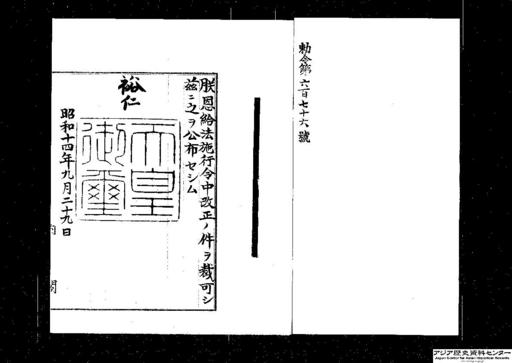 勅令第六百七十六號
朕恩給法施行令中改正ノ件ヲ裁可シ
茲ニ之ヲ公布セシム
裕仁
天皇
御璽
昭和十四年九月二十九日
内閣
アジア歴史資料センター
Japan Center for Asian Historical Records